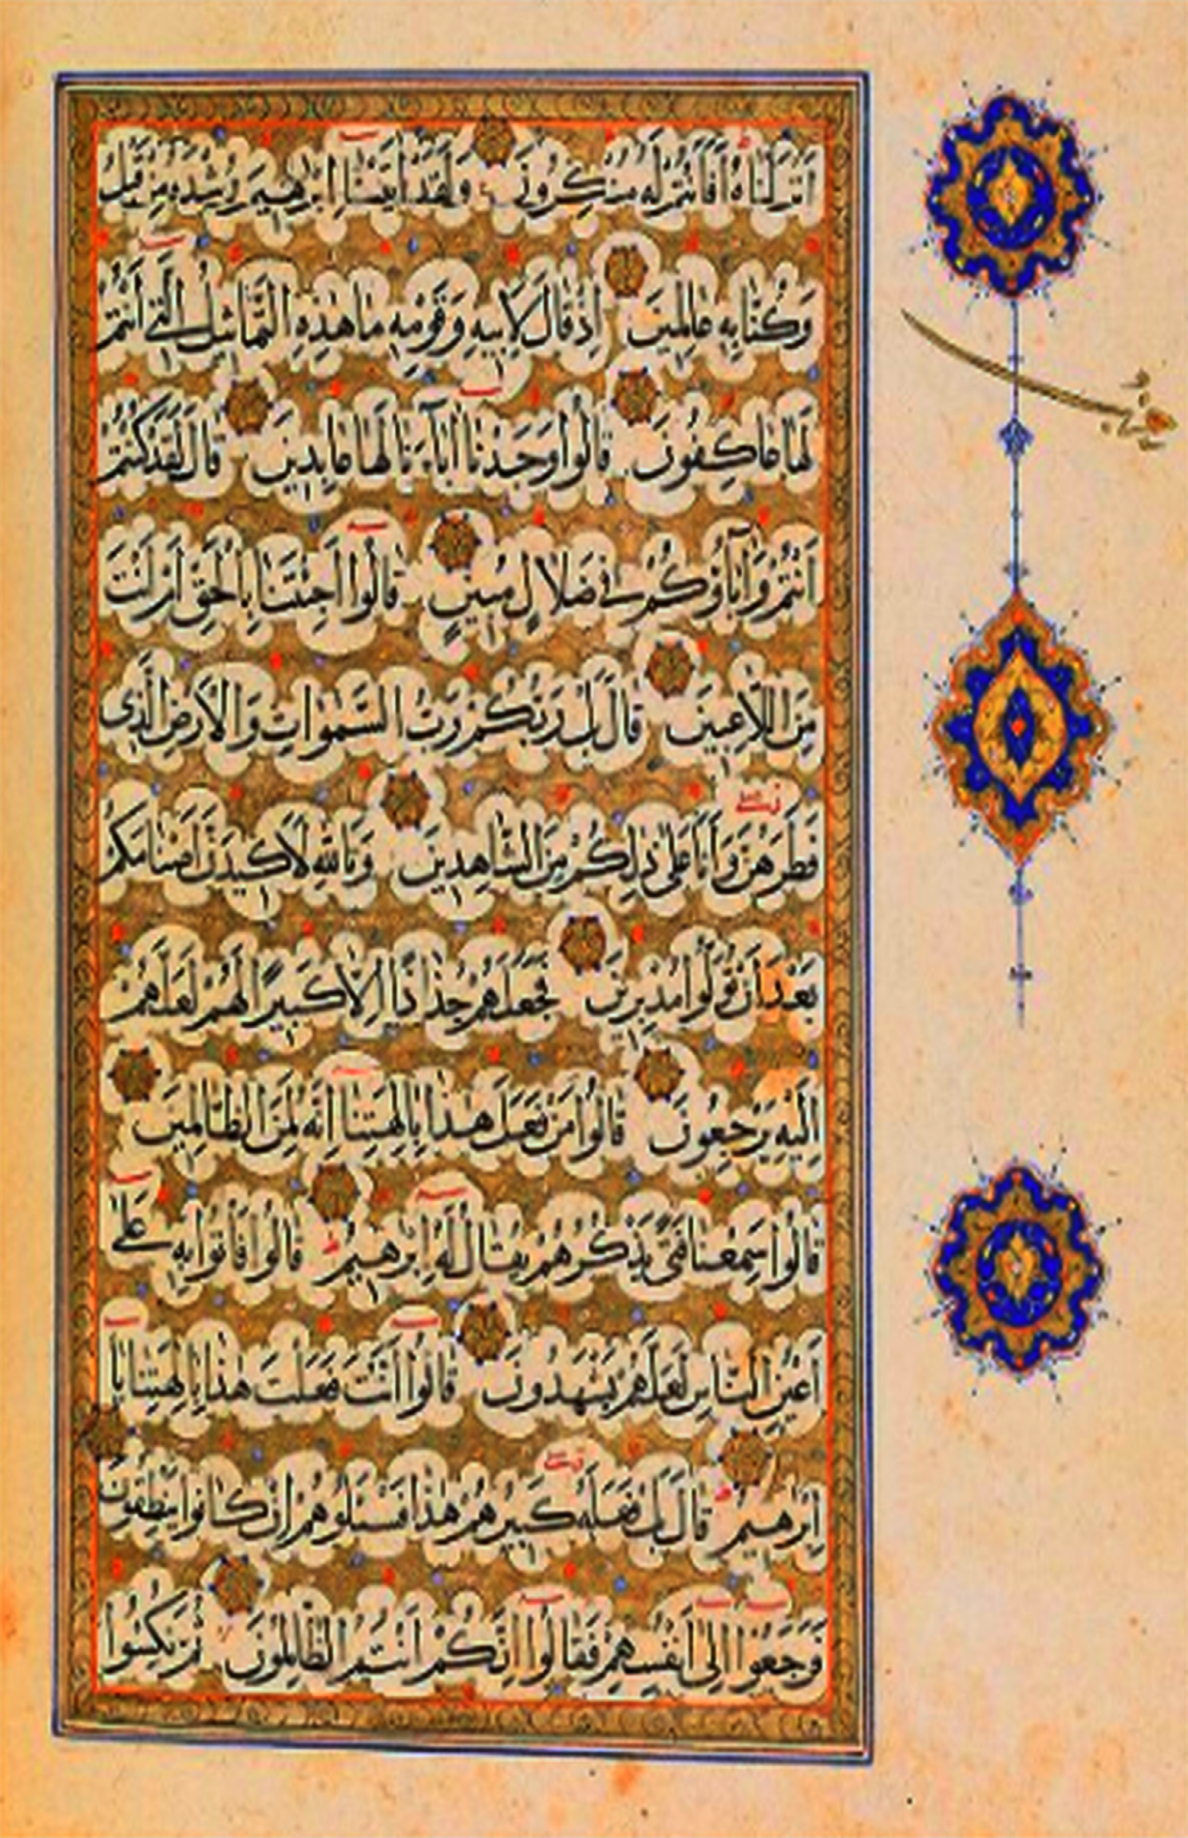 أَنْزَلْنَاهُ أَفَأَنْتُمْ لَهُ مُنْكِرُونَ وَلَقَدْ آتَيْنَا إِبْرٰهِيمَ رُشْدَهُ مِنْ قَبْلُ
وَكُنَّا بِهِ عَالِمِينَ إِذْ قَالَ لِأَبِيهِ وَقَوْمِهِ مَا هٰذِهِ التَّمَاثِيلُ الَّتِي أَنْتُمْ
لَهَا عَاكِفُونَ قَالُوا وَجَدْنَا آبَاءَنَا لَهَا عَابِدِينَ قَالَ لَقَدْ كُنْتُمْ
أَنْتُمْ وَآبَاؤُكُمْ فِي ضَلَالٍ مُبِينٍ قَالُوا أَجِئْتَنَا بِالْحَقِّ أَمْ أَنْتَ
مِنَ اللَّاعِبِينَ قَالَ بَلْ رَبُّكُمْ رَبُّ السَّمٰوَاتِ وَالْأَرْضِ الَّذِي
فَطَرَهُنَّ وَأَنَا عَلَى ذٰلِكُمْ مِنَ الشَّاهِدِينَ وَتَاللّٰهِ لَأَكِيدَنَّ أَصْنَامَكُمْ
بَعْدَ أَنْ تُوَلُّوا مُدْبِرِينَ فَجَعَلَهُمْ جُذَاذًا إِلَّا كَبِيرًا لَهُمْ لَعَلَّهُمْ
إِلَيْهِ يَرْجِعُونَ قَالُوا مَنْ فَعَلَ هٰذَا بِآلِهَتِنَا إِنَّهُ لَمِنَ الظَّالِمِينَ
قَالُوا سَمِعْنَا فَتًى يَذْكُرُهُمْ يُقَالُ لَهُ إِبْرٰهِيمُ قَالُوا فَأْتُوا بِهِ عَلَى
أَعْيُنِ النَّاسِ لَعَلَّهُمْ يَشْهَدُونَ قَالُوا أَأَنْتَ فَعَلْتَ هٰذَا بِآلِهَتِنَا يَا
إِبْرٰهِيمُ قَالَ بَلْ فَعَلَهُ كَبِيرُهُمْ هٰذَا فَسْئَلُوهُمْ إِنْ كَانُوا يَنْطِقُونَ
فَرَجَعُوا إِلَى أَنْفُسِهِمْ فَقَالُوا إِنَّكُمْ أَنْتُمُ الظَّالِمُونَ ثُمَّ نُكِسُوا